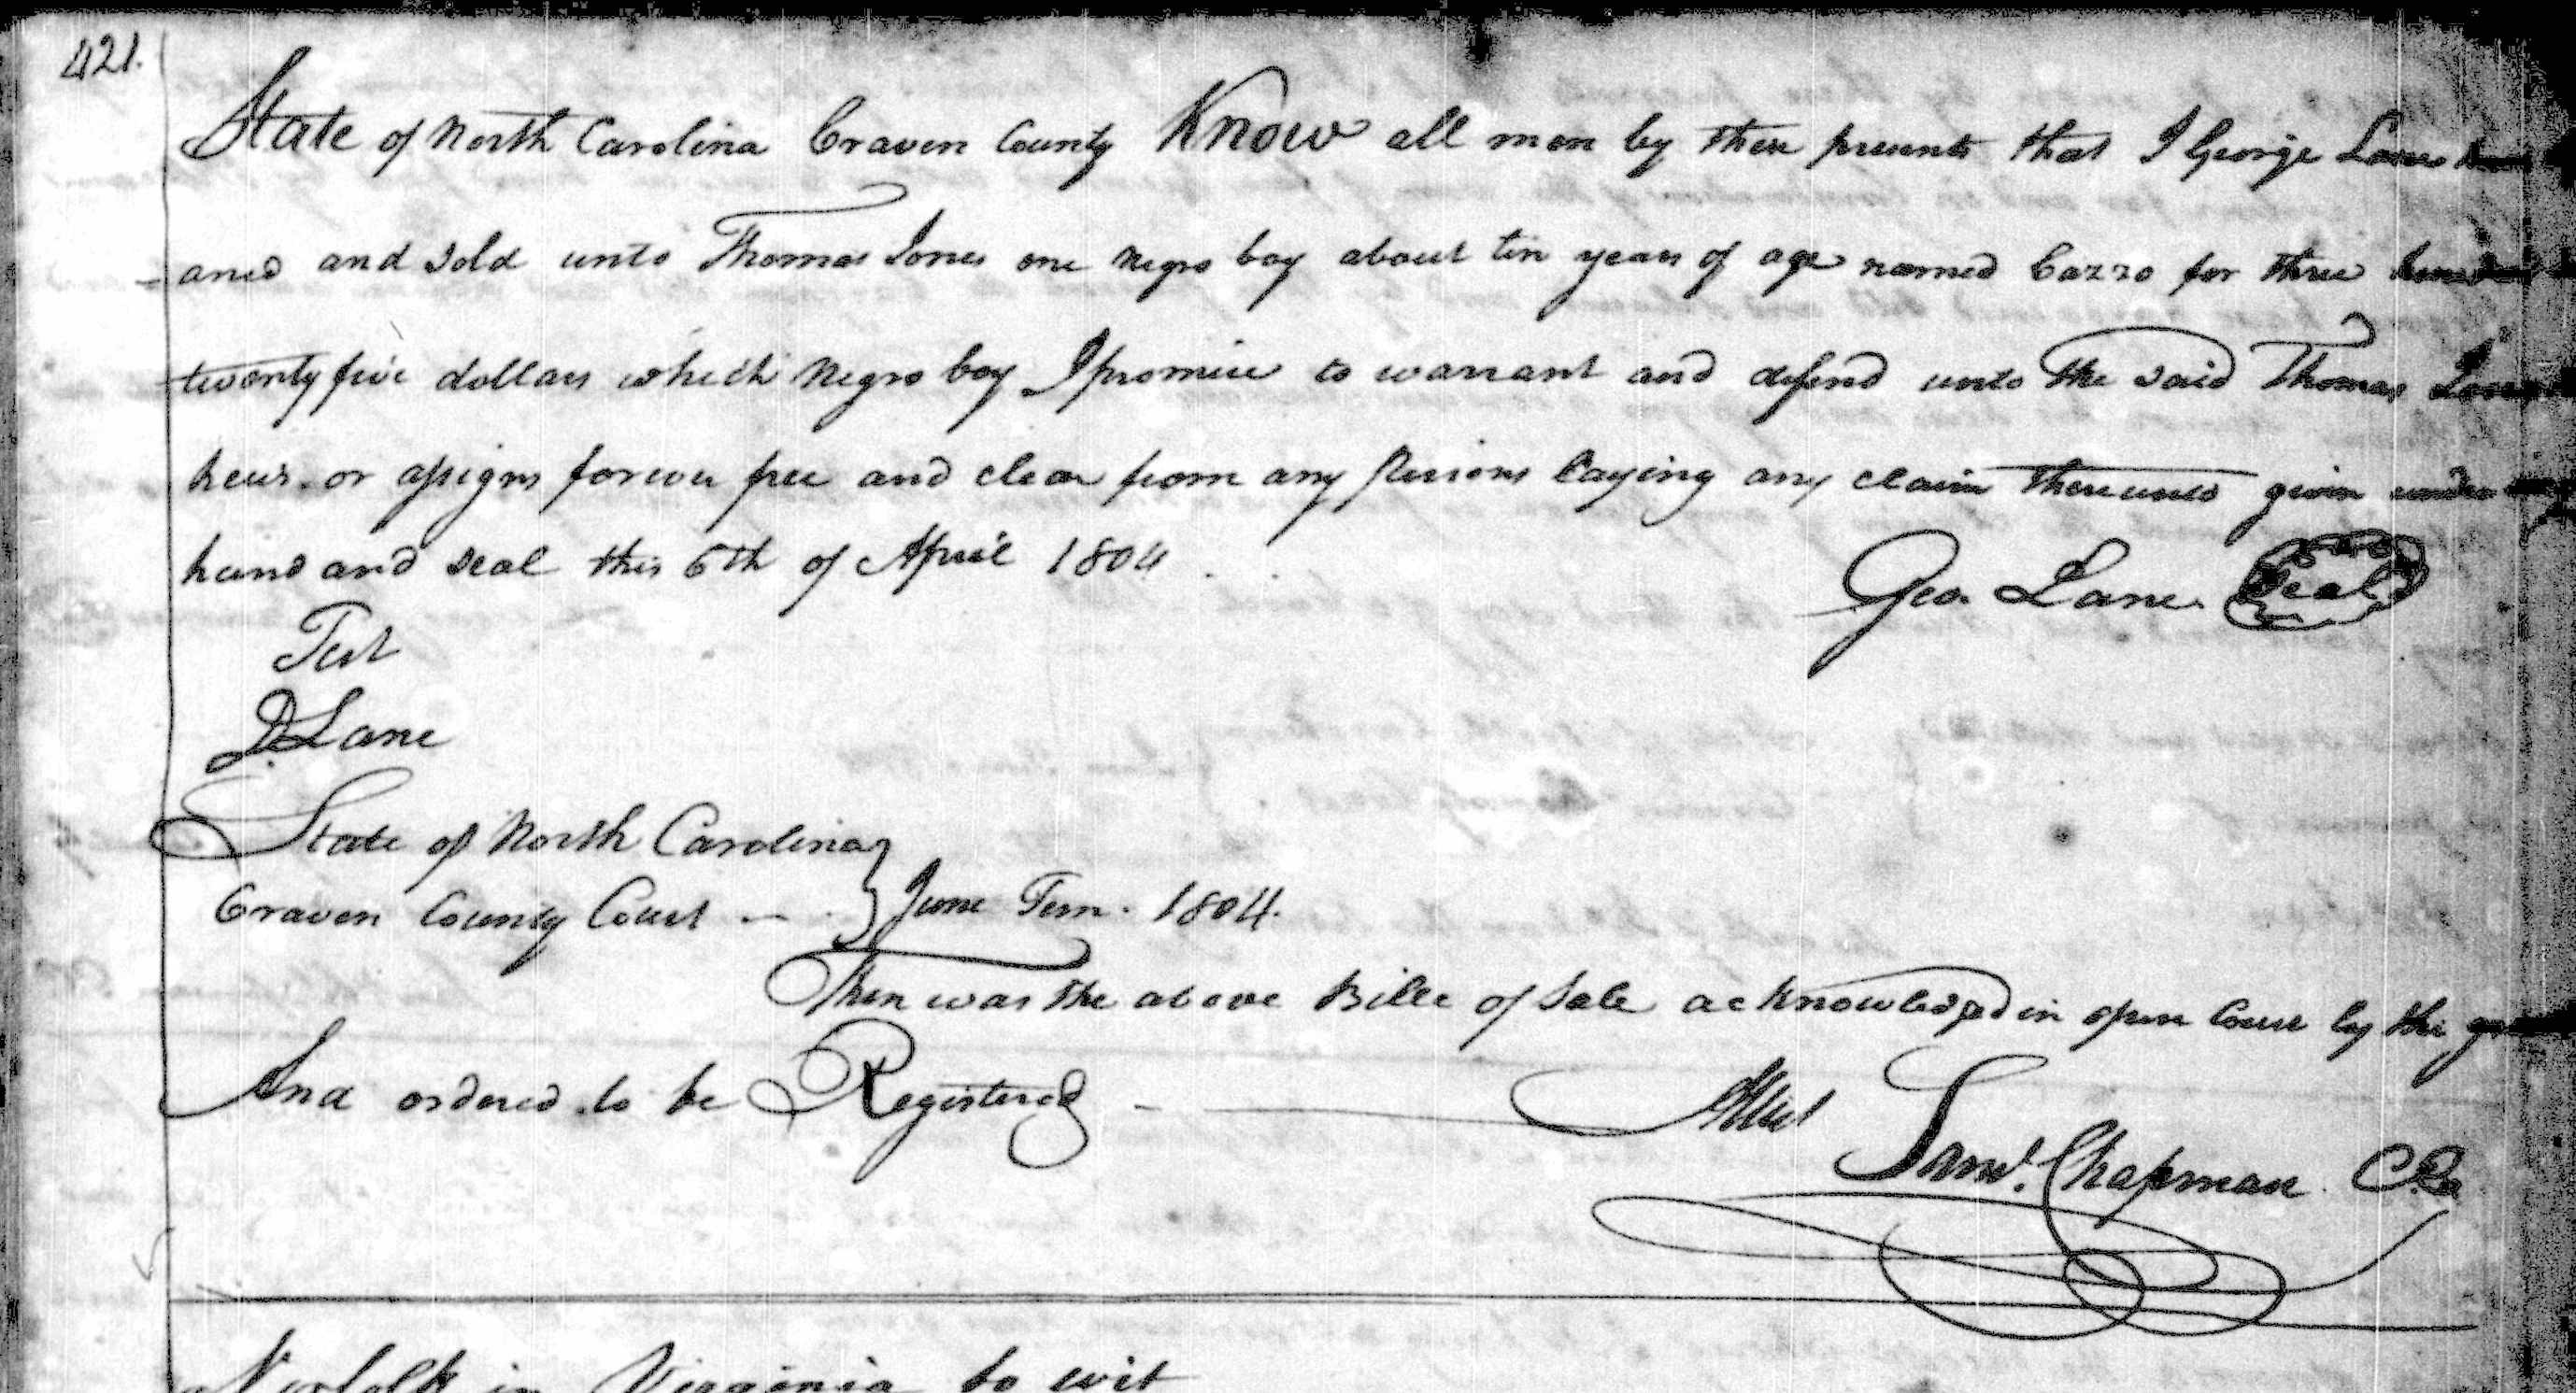 421.
State of North Carolina Craven County Know all men by these presents that I George Lane
aned and sold unto Thomas Jones one Negro boy about ten years of age named Cazzo for three
twenty five dollars which Negro boy I promise to warrant and defend unto the said Thomas Jones
heirs or assigns forever free and clear from any persons laying any claim thereunto given under
hand and seal this 6th of April 1804
Geo. Lane Seal
Test
D. Lane
State of North Carolina
Craven County Court — } June Term. 1804.
Then was the above Bill of Sale acknowledged in open Court by the
And ordered to be Registered —
Attest
Saml. Chapman C.C.
Norfolk in Virginia to wit